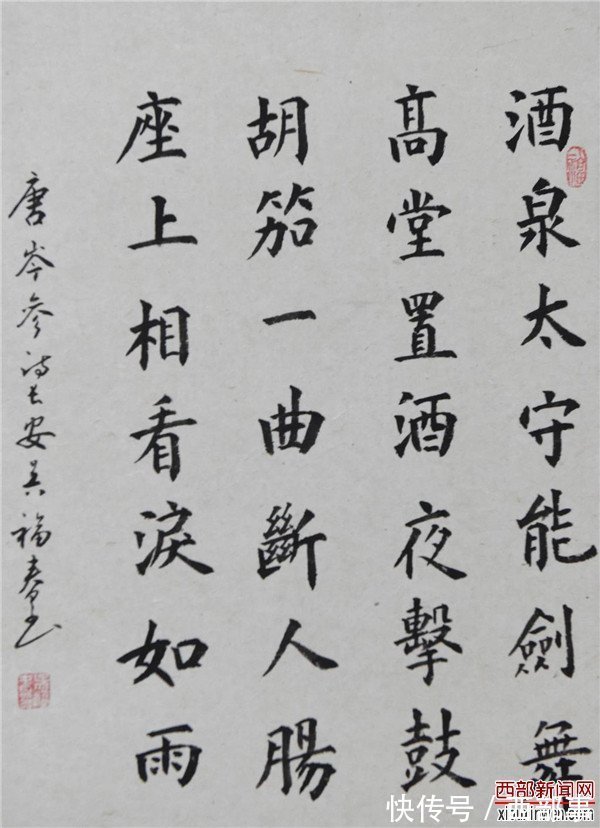 酒泉太守能劍舞
高堂置酒夜擊鼓
胡笳一曲斷人腸
座上相看淚如雨
唐岑參詩長安吳福春书
西部新闻网
快传号